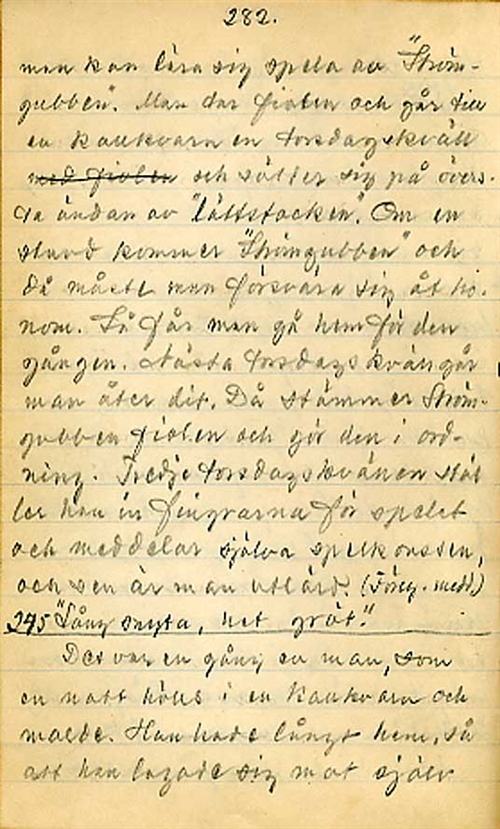 282.
man kan lära sig spela av "Ström-
gubben". Man tar fiolen och går till
en kaukvarn en torsdagskväll
med fiolen och sätter sig på övers-
ta ändan av "lättstocken". Om en
stund kommer "Strömgubben" och
då måste man försvära sig åt ho-
nom. Så får man gå hem för den
gången. Nästa torsdagskväll går
man åter dit. Då stämmer Ström-
gubben fiolen och gör den i ord-
ning. Tredje torsdagskvällen stäl
ler han in fingrarna för spelet
och meddelar själva spelkonsten,
och sen är man utlärd. (Föreg. medd.)
245 "Lång snyta, het gröt."
Det var en gång en man, som
en natt hölls i en kaukvarn och
malde. Han hade långt hem, så
att han lagade sig mat själv